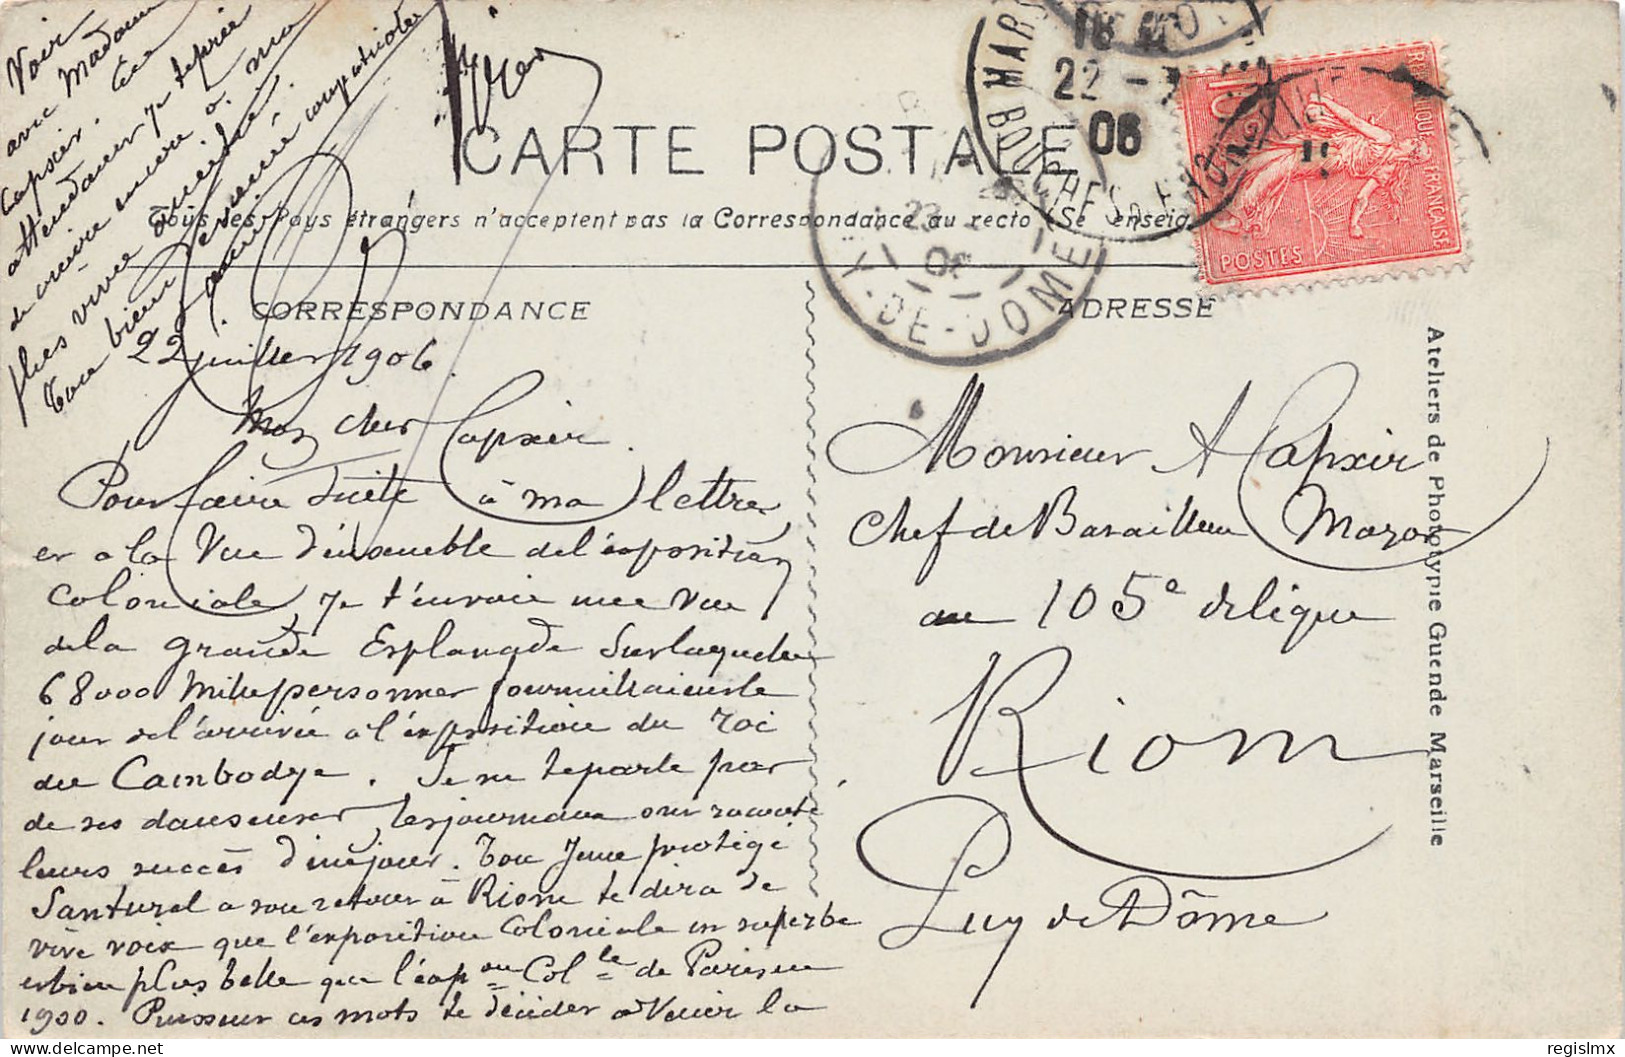 CARTE POSTALE
Tous les Pays étrangers n'acceptent pas la Correspondance au recto (Se renseig
CORRESPONDANCE
ADRESSE
22 juillet 1906.
Mon cher Capxir.
Pour faire suite à ma lettre
et a la Vue d'ensemble de l'exposition
Coloniale, je t'envoie une vue
de la grande Esplanade sur laquelle
68000 mille personnes fourmillaient le
jour de l'arrivée a l'exposition du roi
du Cambodge. Je ne te parle pas
de ses danseuses, les journaux ont raconté
leurs succès d'un jour. Ton jeune protégé
Santurel a son retour à Riom te dira de
vive voix que l'exposition Coloniale en superbe
et bien plus belle que l'expon Colle de Paris en
1900. Puissent ces mots te décider a venir la
Voir
avec Madame
Capxir. En
attendant je te prie
de croire encore à ma
plus vive amitié
Ton bien dévoué compatriote
et ami
Monsieur A Capxir
Chef de Bataillon Major
au 105e de ligne
Riom
Puy de Dôme
22
06
BOUCHES-DU-RHONE
22
06
Y-DE-DOME
REPUBLIQUE FRANÇAISE
10
POSTES
Ateliers de Phototypie Guende Marseille
delcampe.net
regislmx